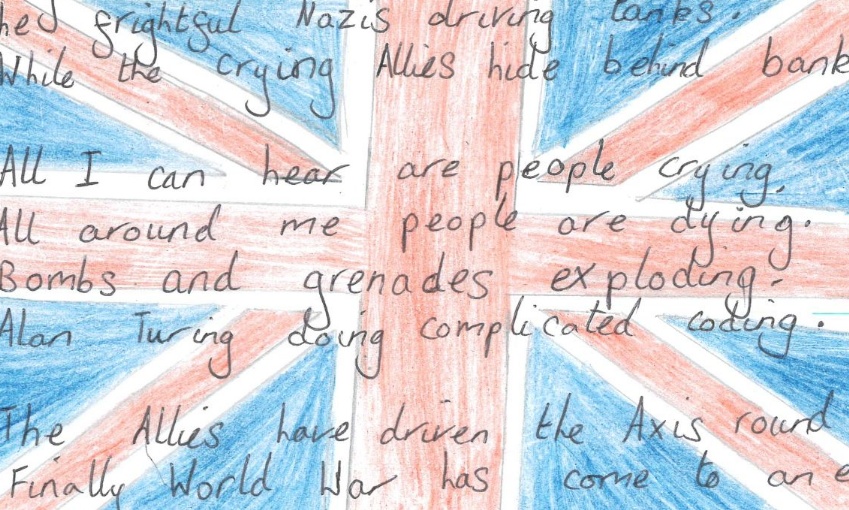 frightful Nazis driving tanks.
While the crying Allies hide behind
All I can hear are people crying.
All around me people are dying.
Bombs and grenades exploding.
Alan Turing doing complicated coding.
The Allies have driven the Axis round
Finally World War has come to an